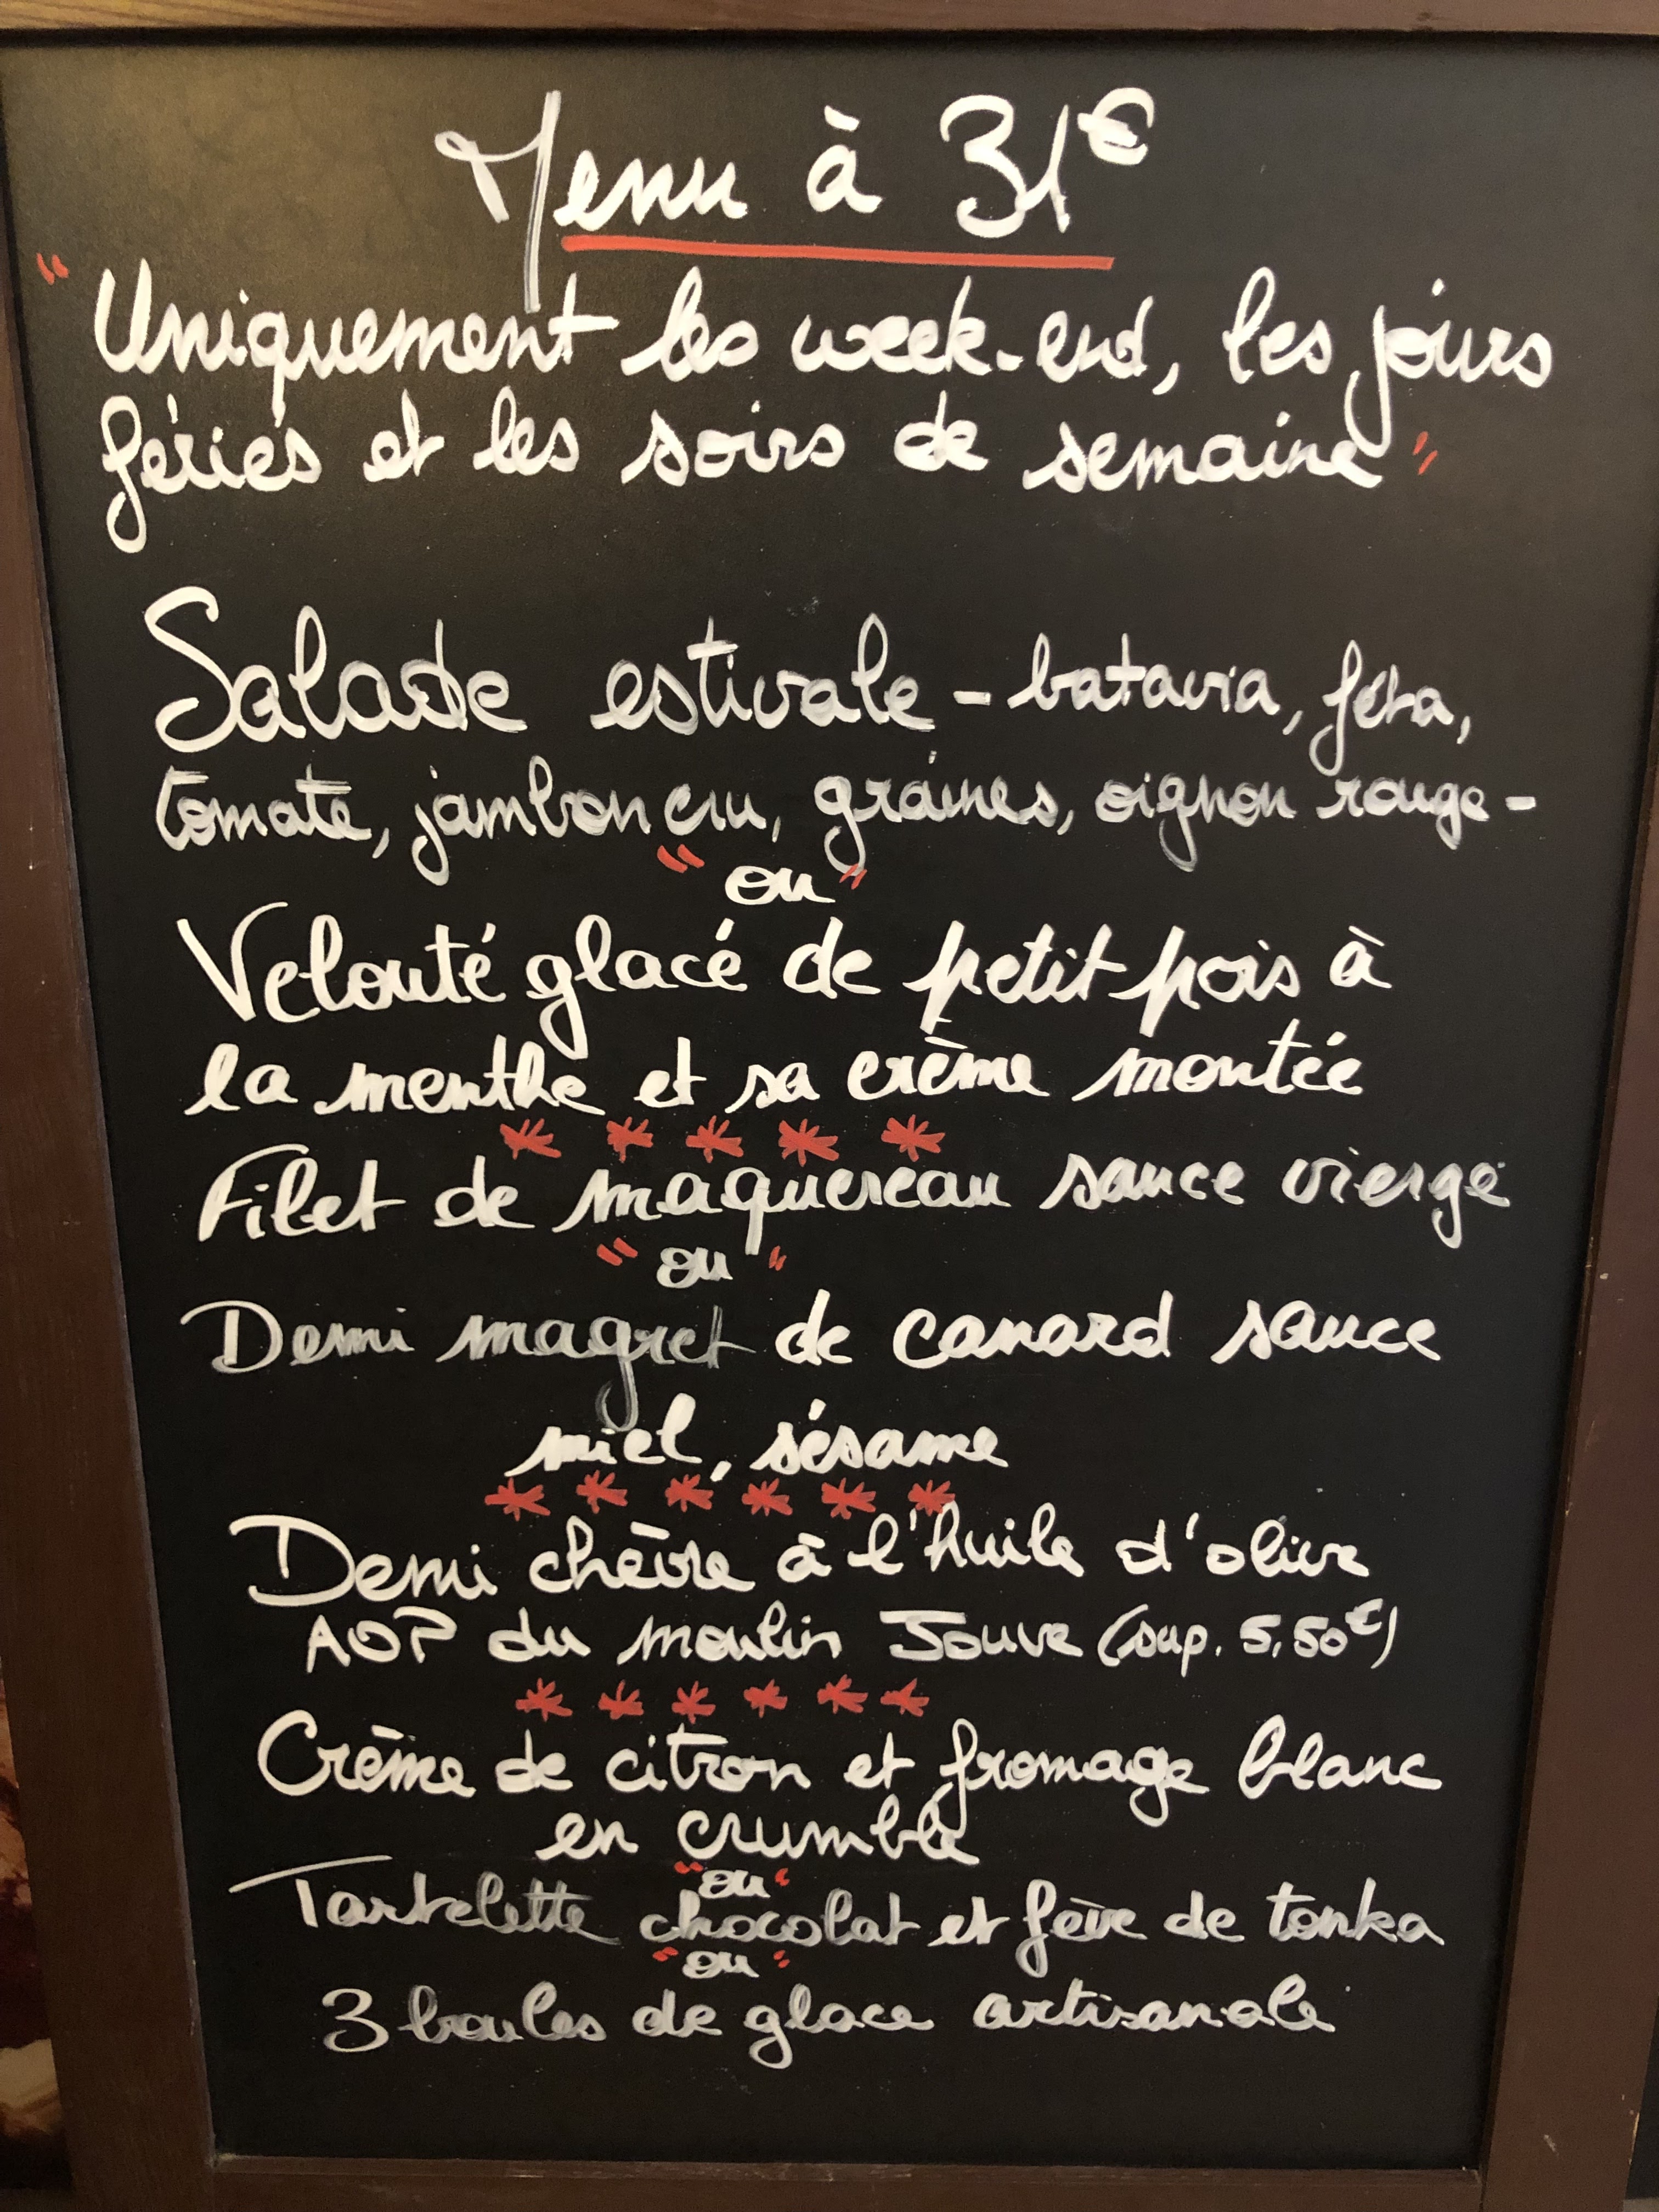 Menu à 31€
"Uniquement les week-end, les jours
fériés et les soirs de semaine"
Salade estivale - batavia, féta,
tomate, jambon cru, graines, oignon rouge -
"ou"
Velouté glacé de petit pois à
la menthe et sa crème montée
* * * * *
Filet de maquereau sauce vierge
"ou"
Demi magret de canard sauce
miel, sésame
* * * * * *
Demi chèvre à l'huile d'olive
AOP du moulin Jouve (sup. 5,50€)
* * * * * *
Crème de citron et fromage blanc
en crumble
"ou"
Tartelette chocolat et fève de tonka
"ou"
3 boules de glace artisanale